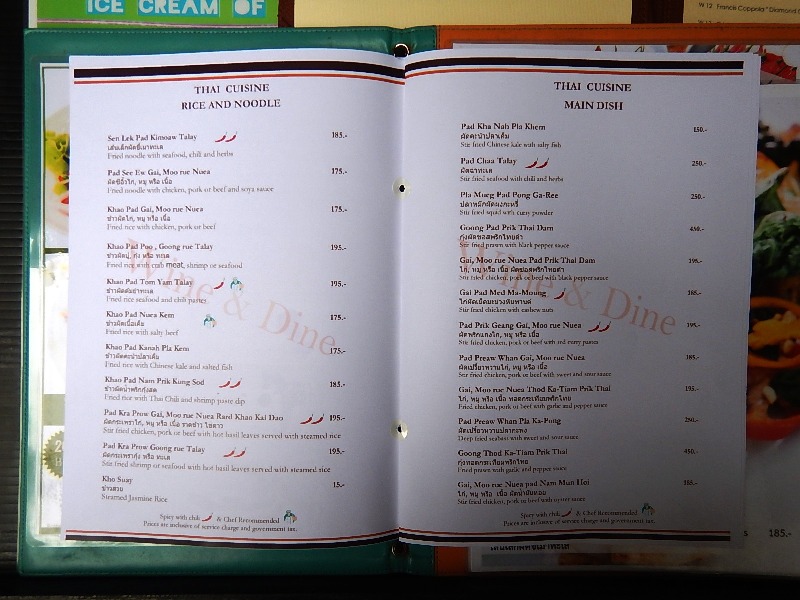 ICE CREAM OF
W 12 Francis Coppola "Diamond C
THAI CUISINE
RICE AND NOODLE
Sen Lek Pad Kimoaw Talay 185.-
เส้นเล็กผัดขี้เมาทะเล
Fried noodle with seafood, chili and herbs
Pad See Ew Gai, Moo rue Nuea 175.-
ผัดซีอิ้วไก่, หมู หรือ เนื้อ
Fried noodle with chicken, pork or beef and soya sauce
Khao Pad Gai, Moo rue Nuea 175.-
ข้าวผัดไก่, หมู หรือ เนื้อ
Fried rice with chicken, pork or beef
Khao Pad Poo , Goong rue Talay 195.-
ข้าวผัดปู, กุ้ง หรือ ทะเล
Fried rice with crab meat, shrimp or seafood
Khao Pad Tom Yam Talay 195.-
ข้าวผัดต้มยำทะเล
Fried rice seafood and chili pastes
Khao Pad Nuea Kem 175.-
ข้าวผัดเนื้อเค็ม
Fried rice with salty beef
Khao Pad Kanah Pla Kem 175.-
ข้าวผัดคะน้าปลาเค็ม
Fried rice with Chinese kale and salted fish
Khao Pad Nam Prik Kung Sod 185.-
ข้าวผัดน้ำพริกกุ้งสด
Fried rice with Thai Chili and shrimp paste dip
Pad Kra Prow Gai, Moo rue Nuea Rard Khao Kai Dao 195.-
ผัดกระเพราไก่, หมู หรือ เนื้อ ราดข้าว ไข่ดาว
Stir fried chicken, pork or beef with hot basil leaves served with steamed rice
Pad Kra Prow Goong rue Talay 195.-
ผัดกระเพรากุ้ง หรือ ทะเล
Stir fried shrimp or seafood with hot basil leaves served with steamed rice
Kho Suay 15.-
ข้าวสวย
Steamed Jasmine Rice
Spicy with chili & Chef Recommended
Prices are inclusive of service charge and government tax.
Wine & Dine
THAI CUISINE
MAIN DISH
Pad Kha Nah Pla Khem 150.-
ผัดคะน้าปลาเค็ม
Stir fried Chinese kale with salty fish
Pad Chaa Talay 250.-
ผัดฉ่าทะเล
Stir fried seafood with chili and herbs
Pla Mueg Pad Pong Ga-Ree 250.-
ปลาหมึกผัดผงกะหรี่
Stir fried squid with curry powder
Goong Pad Prik Thai Dam 450.-
กุ้งผัดซอสพริกไทยดำ
Stir fried prawn with black pepper sauce
Gai, Moo rue Nuea Pad Prik Thai Dam 195.-
ไก่, หมู หรือ เนื้อ ผัดซอสพริกไทยดำ
Stir fried chicken, pork or beef with black pepper sauce
Gai Pad Med Ma-Moung 185.-
ไก่ผัดเม็ดมะม่วงหิมพานต์
Stir fried chicken with cashew nuts
Pad Prik Geang Gai, Moo rue Nuea 195.-
ผัดพริกแกงไก่, หมู หรือ เนื้อ
Stir fried chicken, pork or beef with red curry pastes
Pad Preaw Whan Gai, Moo rue Nuea 185.-
ผัดเปรี้ยวหวานไก่, หมู หรือ เนื้อ
Stir fried chicken, pork or beef with sweet and sour sauce
Gai, Moo rue Nuea Thod Ka-Tiam Prik Thai 195.-
ไก่, หมู หรือ เนื้อ ทอดกระเทียมพริกไทย
Fried chicken, pork or beef with garlic and pepper sauce
Pad Preaw Whan Pla Ka-Pong 250.-
ผัดเปรี้ยวหวานปลากะพง
Deep fried seabass with sweet and sour sauce
Goong Thod Ka-Tiam Prik Thai 450.-
กุ้งทอดกระเทียมพริกไทย
Fried prawn with garlic and pepper sauce
Gai, Moo rue Nuea pad Nam Mun Hoi 185.-
ไก่, หมู หรือ เนื้อ ผัดน้ำมันหอย
Stir fried chicken, pork or beef with oyster sauce
Spicy with chili & Chef Recommended
Prices are inclusive of service charge and government tax.
Wine & Dine
185.-